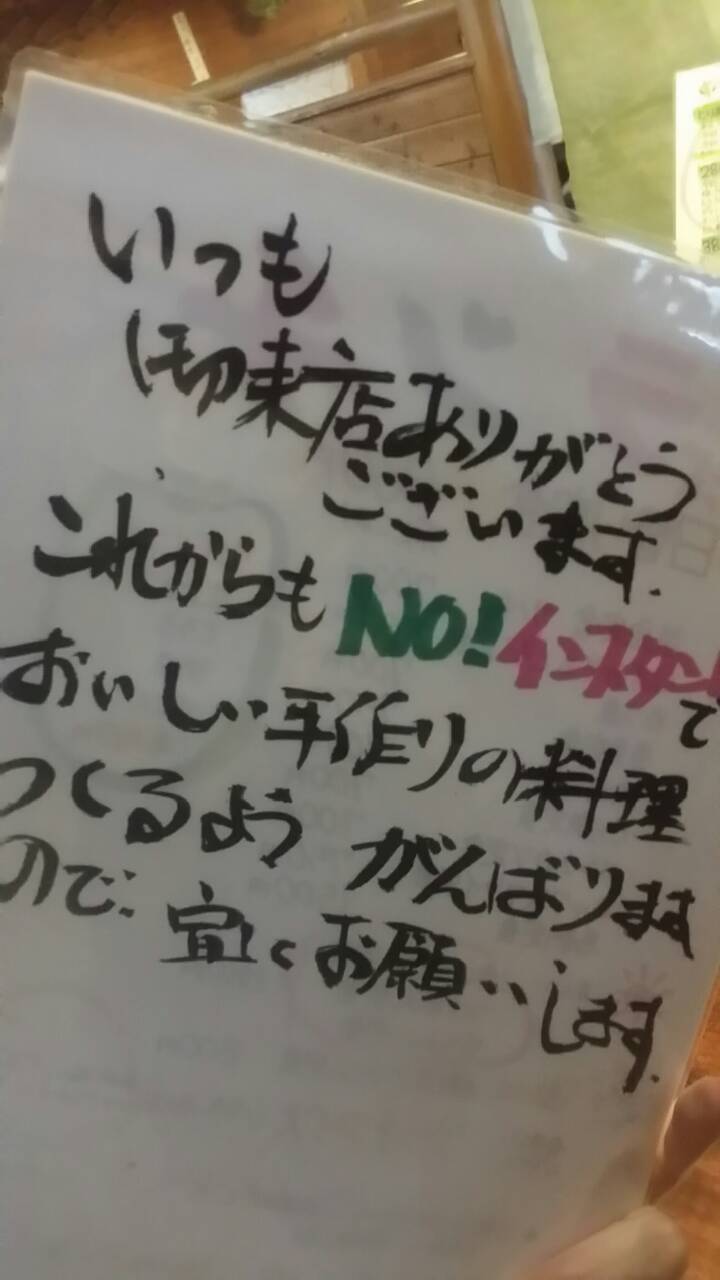 いつも
御来店ありがとう
ございます.
これからもNO!インスタントで
おいしい手作りの料理
つくるよう がんばります
ので、宜くお願いします.